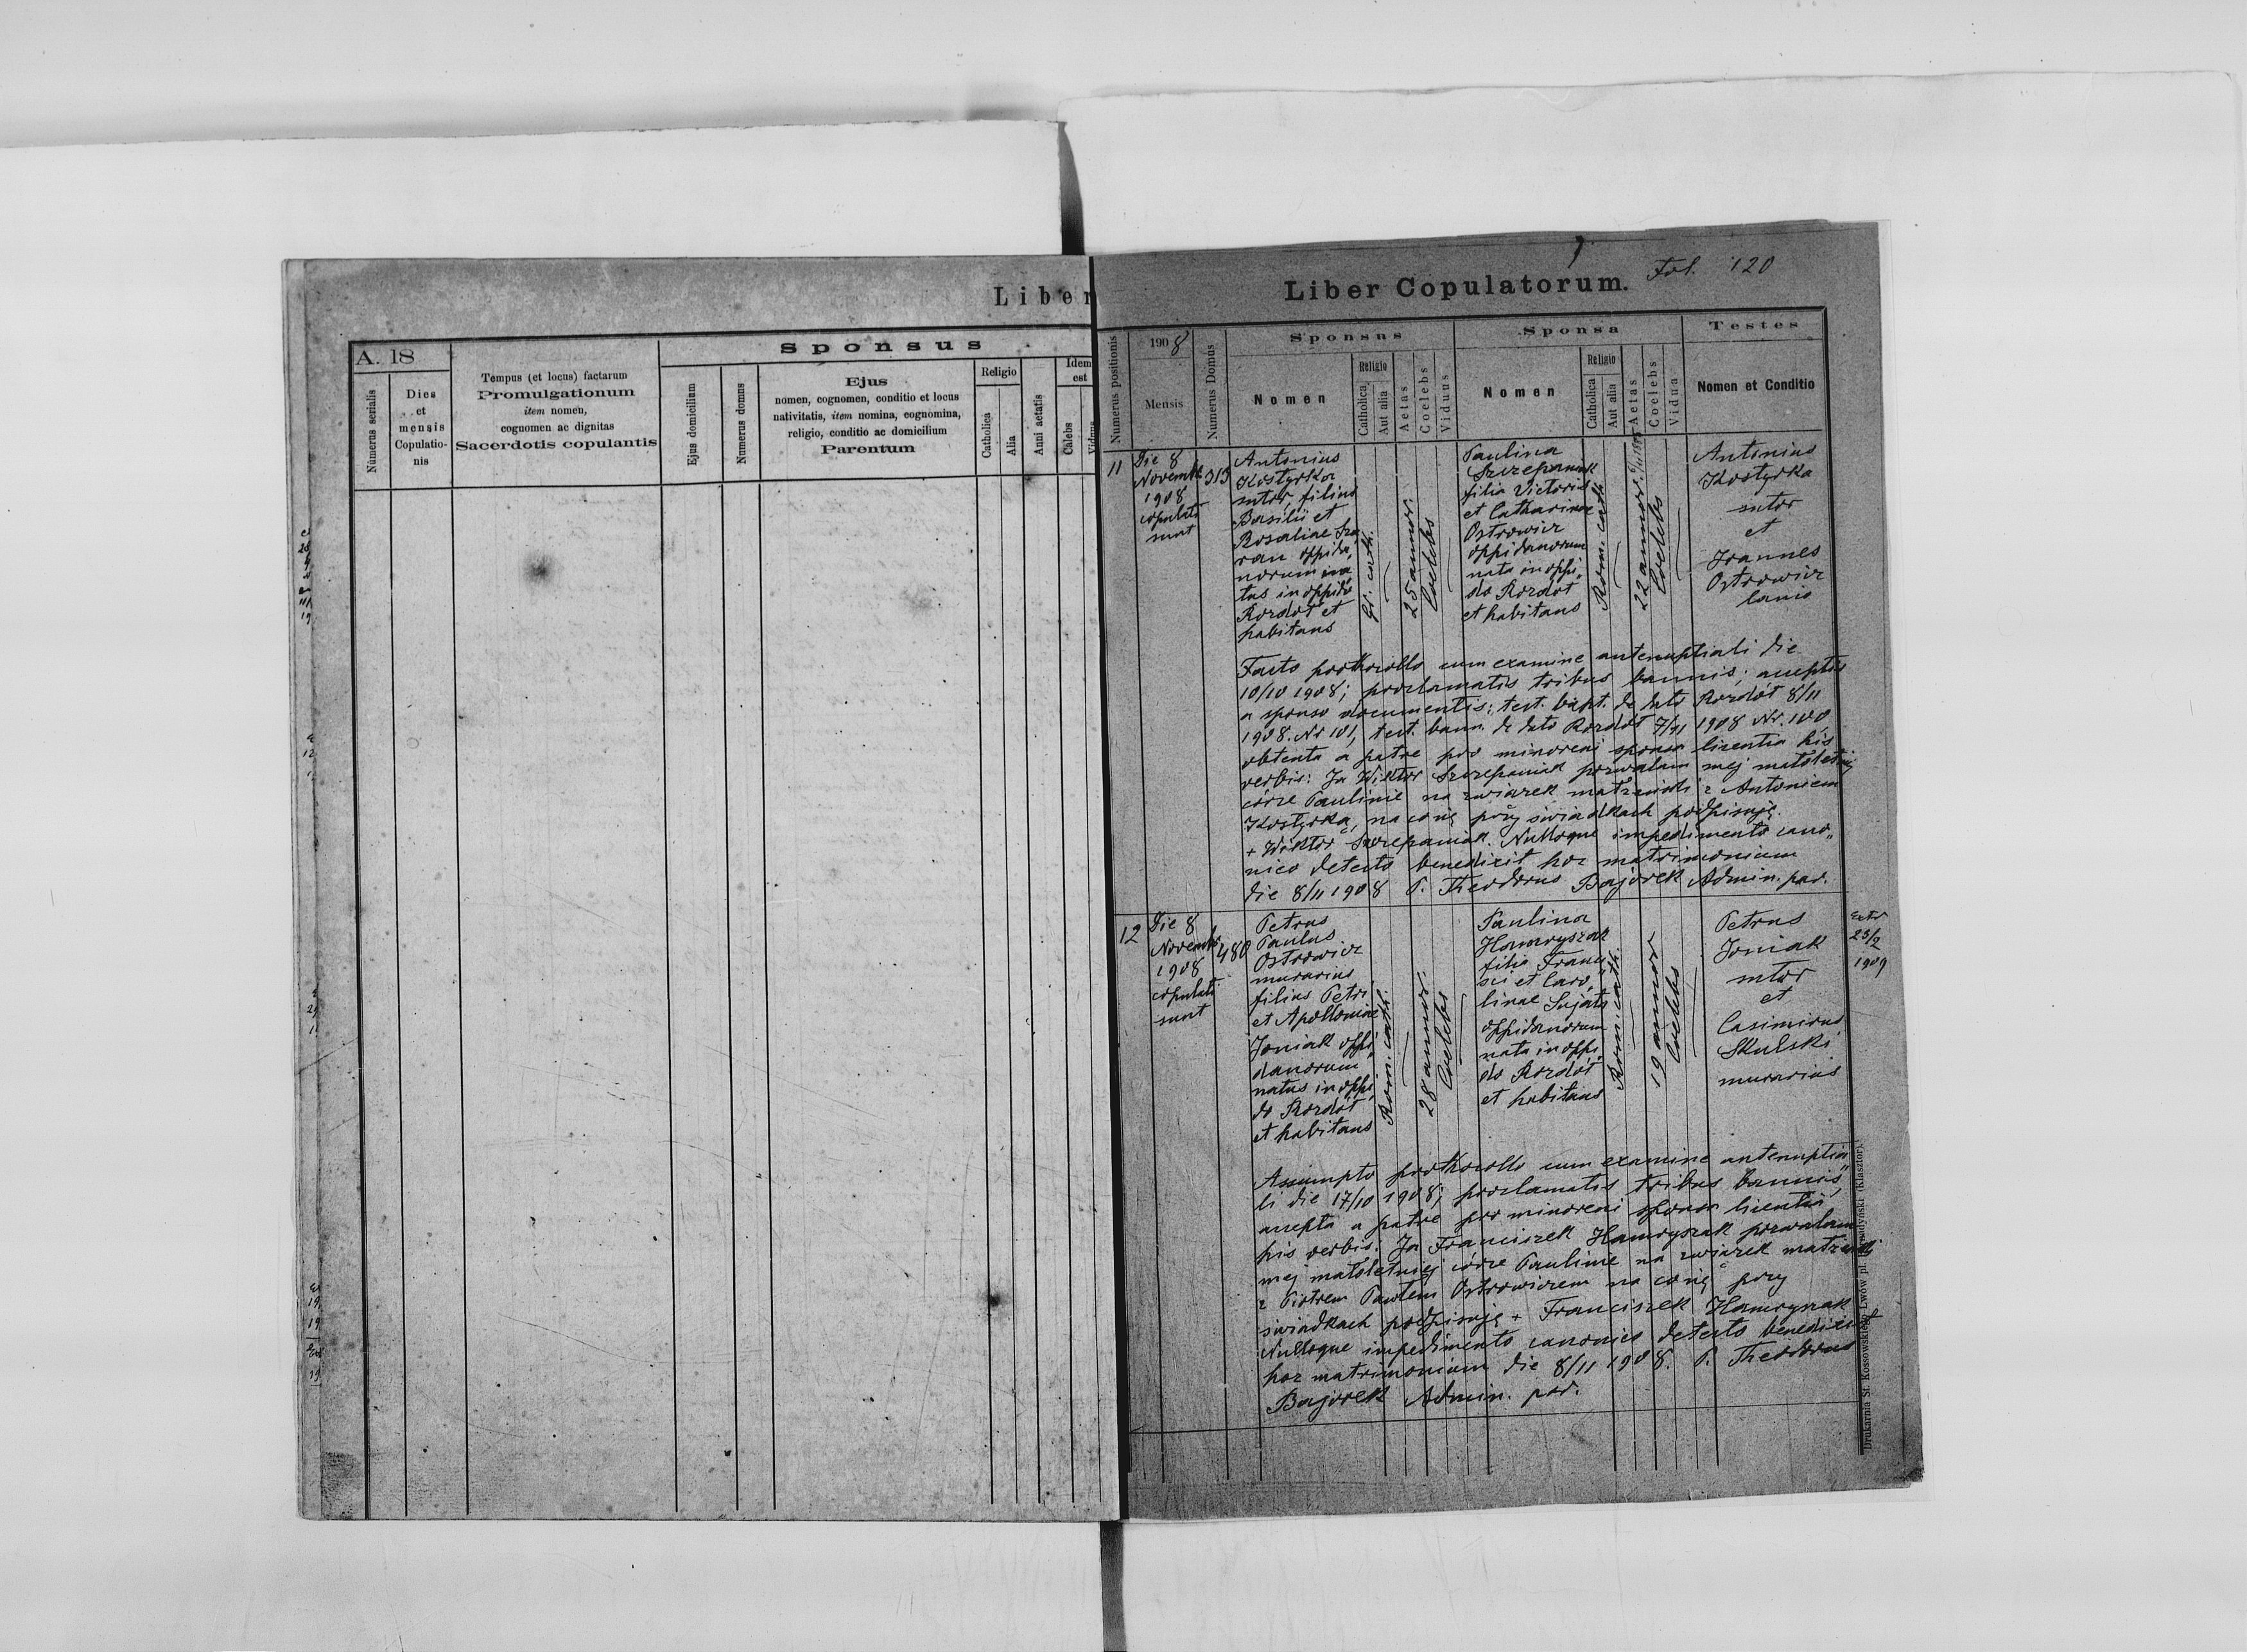 Liber
A. 18
Numerus serialis
Dies
et
mensis
Copulatio-
nis
Tempus (et locus) factarum
Promulgationum
item nomen,
cognomen ac dignitas
Sacerdotis copulantis
Sponsus
Ejus domicilium
Numerus domus
Ejus
nomen, cognomen, conditio et locus
nativitatis, item nomina, cognomina,
religio, conditio ac domicilium
Parentum
Religio
Catholica
Alia
Anni aetatis
Idem
est
Cælebs
Viduus
Liber Copulatorum.
Fol. 120
Numerus positionis
1908
Mensis
Numerus Domus
Sponsus
Nomen
Religio
Catholica
Aut alia
Aetas
Coelebs
Viduus
Sponsa
Nomen
Religio
Catholica
Aut alia
Aetas
Coelebs
Vidua
Testes
Nomen et Conditio
11
Die 8
Novembr.
1908
copulati
sunt
313
Antonius
Kostyrka
sutor, filius
Basilii et
Rosaliae
oppida„
norum na„
tus in oppido
Rozdół et
habitans
gr. cath.
25 annor.
Coelebs
Paulina
Szczepaniak
filia Victoris
et Catharinae
Ostrowicz
oppidanorum
nata in oppi„
do Rozdół
et habitans
Rom. cath.
22 annor.
Coelebs
Antonius
Kostyrka
sutor
et
Joannes
Ostrowicz
lanio
Facto prothocollo cum examine antenuptiali die
10/10 1908; proclamatis tribus bannis; acceptis
a sponso documentis: test. bapt. de dato Rozdół 8/11
1908. Nr 101, test. bann. de dato Rozdół 7/11 1908 Nr. 100
obtenta a patre pro minoreni sponsa licentia his
verbis: Ja Wiktor Szczepaniak pozwalam mej małoletniej
córce Paulinie na związek małżeński z Antoniem
Kostyrką, na co się przy świadkach podpisuję.
+ Wiktor Szczepaniak. Nulloque impedimento cano„
nico detecto benedixit hoc matrimonium
die 8/11 1908 P. Theodorus Bajorek Admin. par.
12
Die 8
Novembr.
1908
copulati
sunt
480
Petrus
Paulus
Ostrowicz
murarius
filius Petri
et Apolloniae
Joniak oppi„
danorum
natus in oppi„
do Rozdół
et habitans
Rom. cath.
28 annor.
Coelebs
Paulina
Hawryszak
filia Franci„
sci et Caro„
linae Sujata
oppidanorum
nata in oppi„
do Rozdół
et habitans
Rom. cath.
19 annor
Coelebs
Petrus
Joniak
sutor
et
Casimirus
Skulski
murarius
Extr
23/2
1909
Assumpto prothocollo cum examine antenuptia„
li die 17/10 1908; proclamatis tribus bannis,
accepta a patre pro minoreni sponsa licentia
his verbis: Ja Franciszek Hawryszak pozwalam
mej małoletniej córce Paulinie na związek małżeński
z Piotrem Pawłem Ostrowiczem na co się przy
świadkach podpisuję + Franciszek Hawryszak
Nulloque impedimento canonico detecto benedixit
hoc matrimonium die 8/11 1908. P. Theodorus
Bajorek Admin. par.